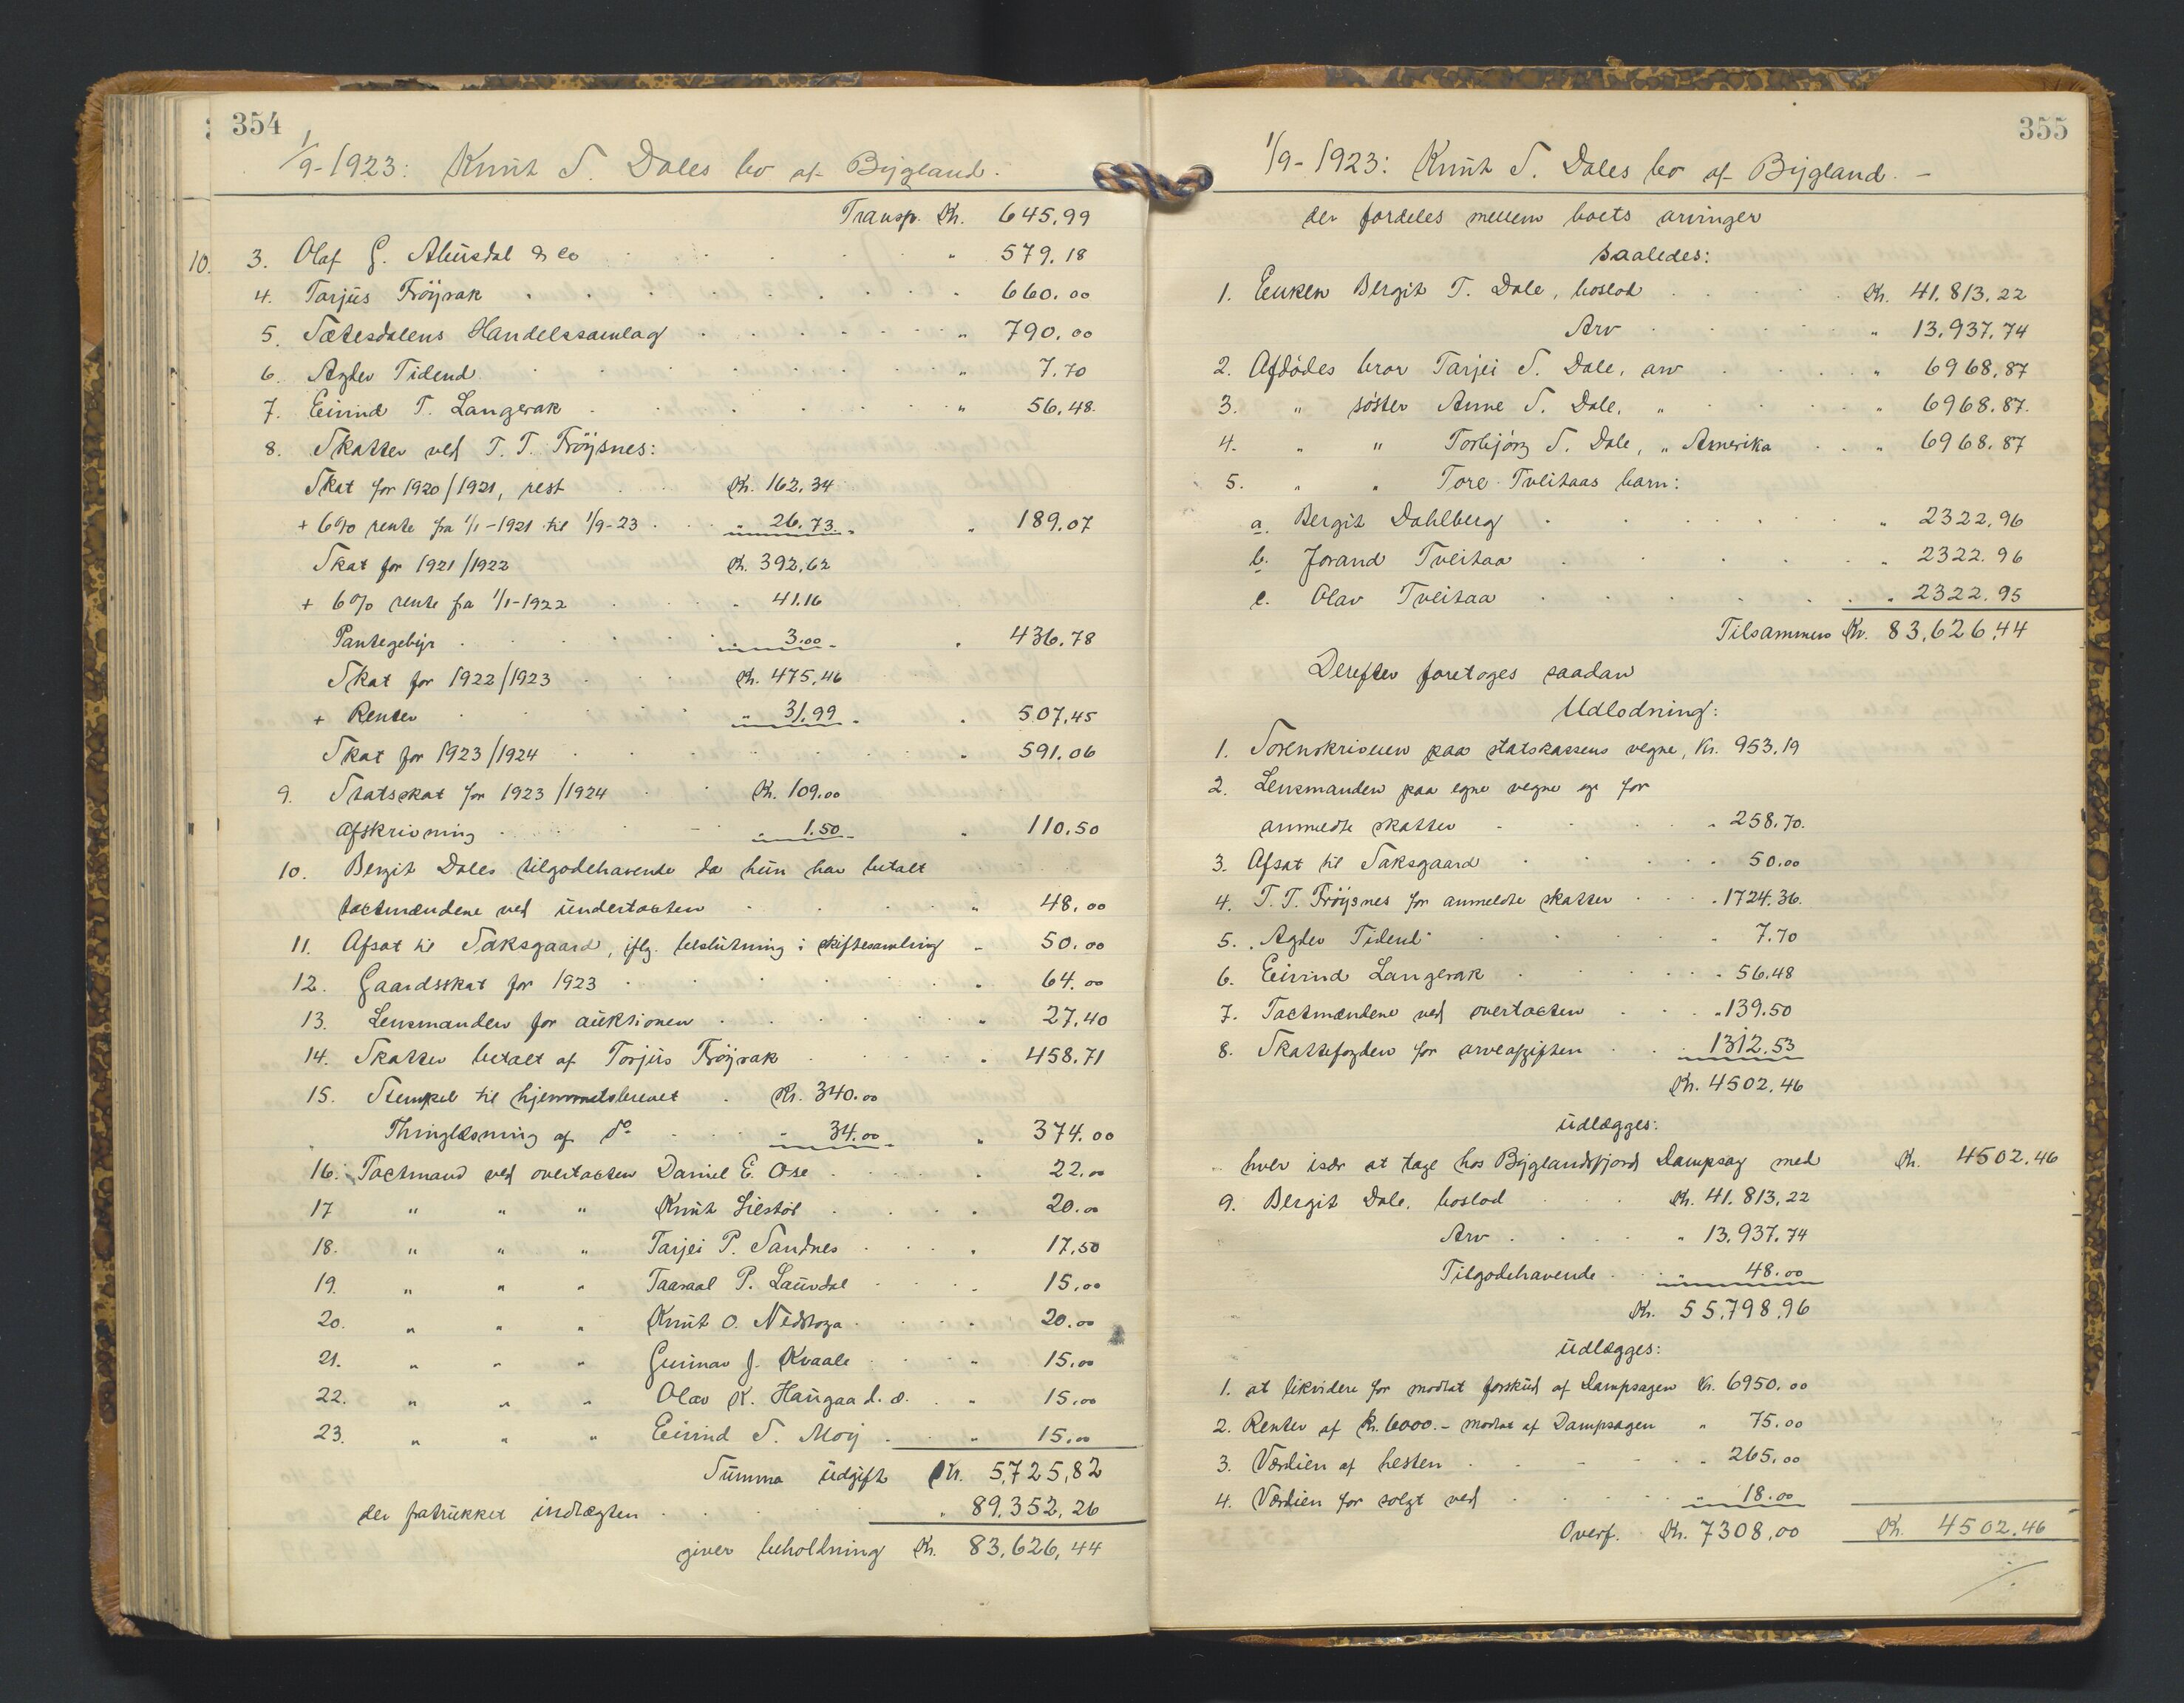 354
1/9-1923: Knut S. Dales bo af Bygland.
Transp. Kr. 645,99
10. 3. Olaf G. Aleusdal & Co " 579,18
4. Tarjus Fröyrak " 660,00
5. Sætesdalens Handelssamlag " 790,00
6. Agder Tidend " 7,70
7. Eivind T. Langerak " 56,48
8. Skatter ved T. T. Fröysnes:
Skat for 1920/1921, rest Kr. 162,34
+ 6% rente fra 1/1-1921 til 1/9-23 " 26,73 " 189,07
Skat for 1921/1922 Kr. 392,62
+ 6% rente fra 1/1-1922 " 41,16
Pantegebyr " 3,00 " 436,78
Skat for 1922/1923 Kr. 475,46
+ Renter " 31,99 " 507,45
Skat for 1923/1924 " 591,06
9. Statsskat for 1923/1924 Kr. 109,00
Afskrivning " 1,50 " 110,50
10. Bergit Dales tilgodehavende da hun har betalt
tactmændene ved undertacten " 48,00
11. Afsat til Saksgaard, iflg. beslutning i skiftesamling " 50,00
12. Gaardsskat for 1923 " 64,00
13. Lensmanden for auktionen " 27,40
14. Skatter betalt af Torjus Fröyrak " 458,71
15. Stempel til hjemmelsbrevet Kr. 340,00
Thinglæsning af do " 34,00 " 374,00
16. Tactmand ved overtacten Daniel E. Ose " 22,00
17 " " " Knut Lilestöl " 20,00
18. " " " Tarjei P. Sandnes " 17,50
19. " " " Taaraal P. Laurdal " 15,00
20. " " " Knut O. Nedstoga " 20,00
21. " " " Gunnar J. Kvaale " 15,00
22. " " " Olav K. Haugaa d. æ. " 15,00
23. " " " Eivind S. Moy " 15,00
Summa udgift Kr. 5,725,82
der fratrukket indtægten " 89,352,26
giver beholdning Kr. 83,626,44
355
1/9-1923: Knut S. Dales bo af Bygland. -
der fordeles mellem boets arvinger
saaledes:
1. Enken Bergit T. Dale, boslod Kr. 41,813,22
Arv " 13,937,74
2. Afdödes bror Tarjei S. Dale, arv " 6968,87
3. " söster Anne S. Dale, " " 6968,87
4. " " Torbjörg S. Dale, " Amerika " 6968,87
5. " " Tore Tveitaas barn:
a. Bergit Dahlberg " 2322,96
b. Jorand Tveitaa " 2322,96
c. Olav Tveitaa " 2322,95
Tilsammen Kr. 83,626,44
Derefter foretoges saadan
Udlodning:
1. Sorenskriveren paa statskassens vegne, Kr. 953,19
2. Lensmanden paa egne vegne og for
anmeldte skatter " 258,70
3. Afsat til Saksgaard " 50,00
4. T. T. Fröysnes for anmeldte skatter " 1724,36
5. Agder Tidend " 7,70
6. Eivind Langerak " 56,48
7. Tactmændene ved overtacten " 139,50
8. Skattefogden for arveafgiften " 1312,53
Kr. 4502,46
udlægges:
hver især at tage hos Byglandsfjord Dampsag med Kr. 4502,46
9. Bergit Dale, boslod Kr. 41,813,22
Arv " 13,937,74
Tilgodehavende " 48,00
Kr. 55,798,96
udlægges:
1. at likvidere for modtat forskud af Dampsagen Kr. 6950,00
2. Renter af Kr. 6000.- modtat af Dampsagen " 75,00
3. Værdien af hesten " 265,00
4. Værdien for solgt ved " 18,00
Overf. Kr. 7308,00 Kr. 4502,46